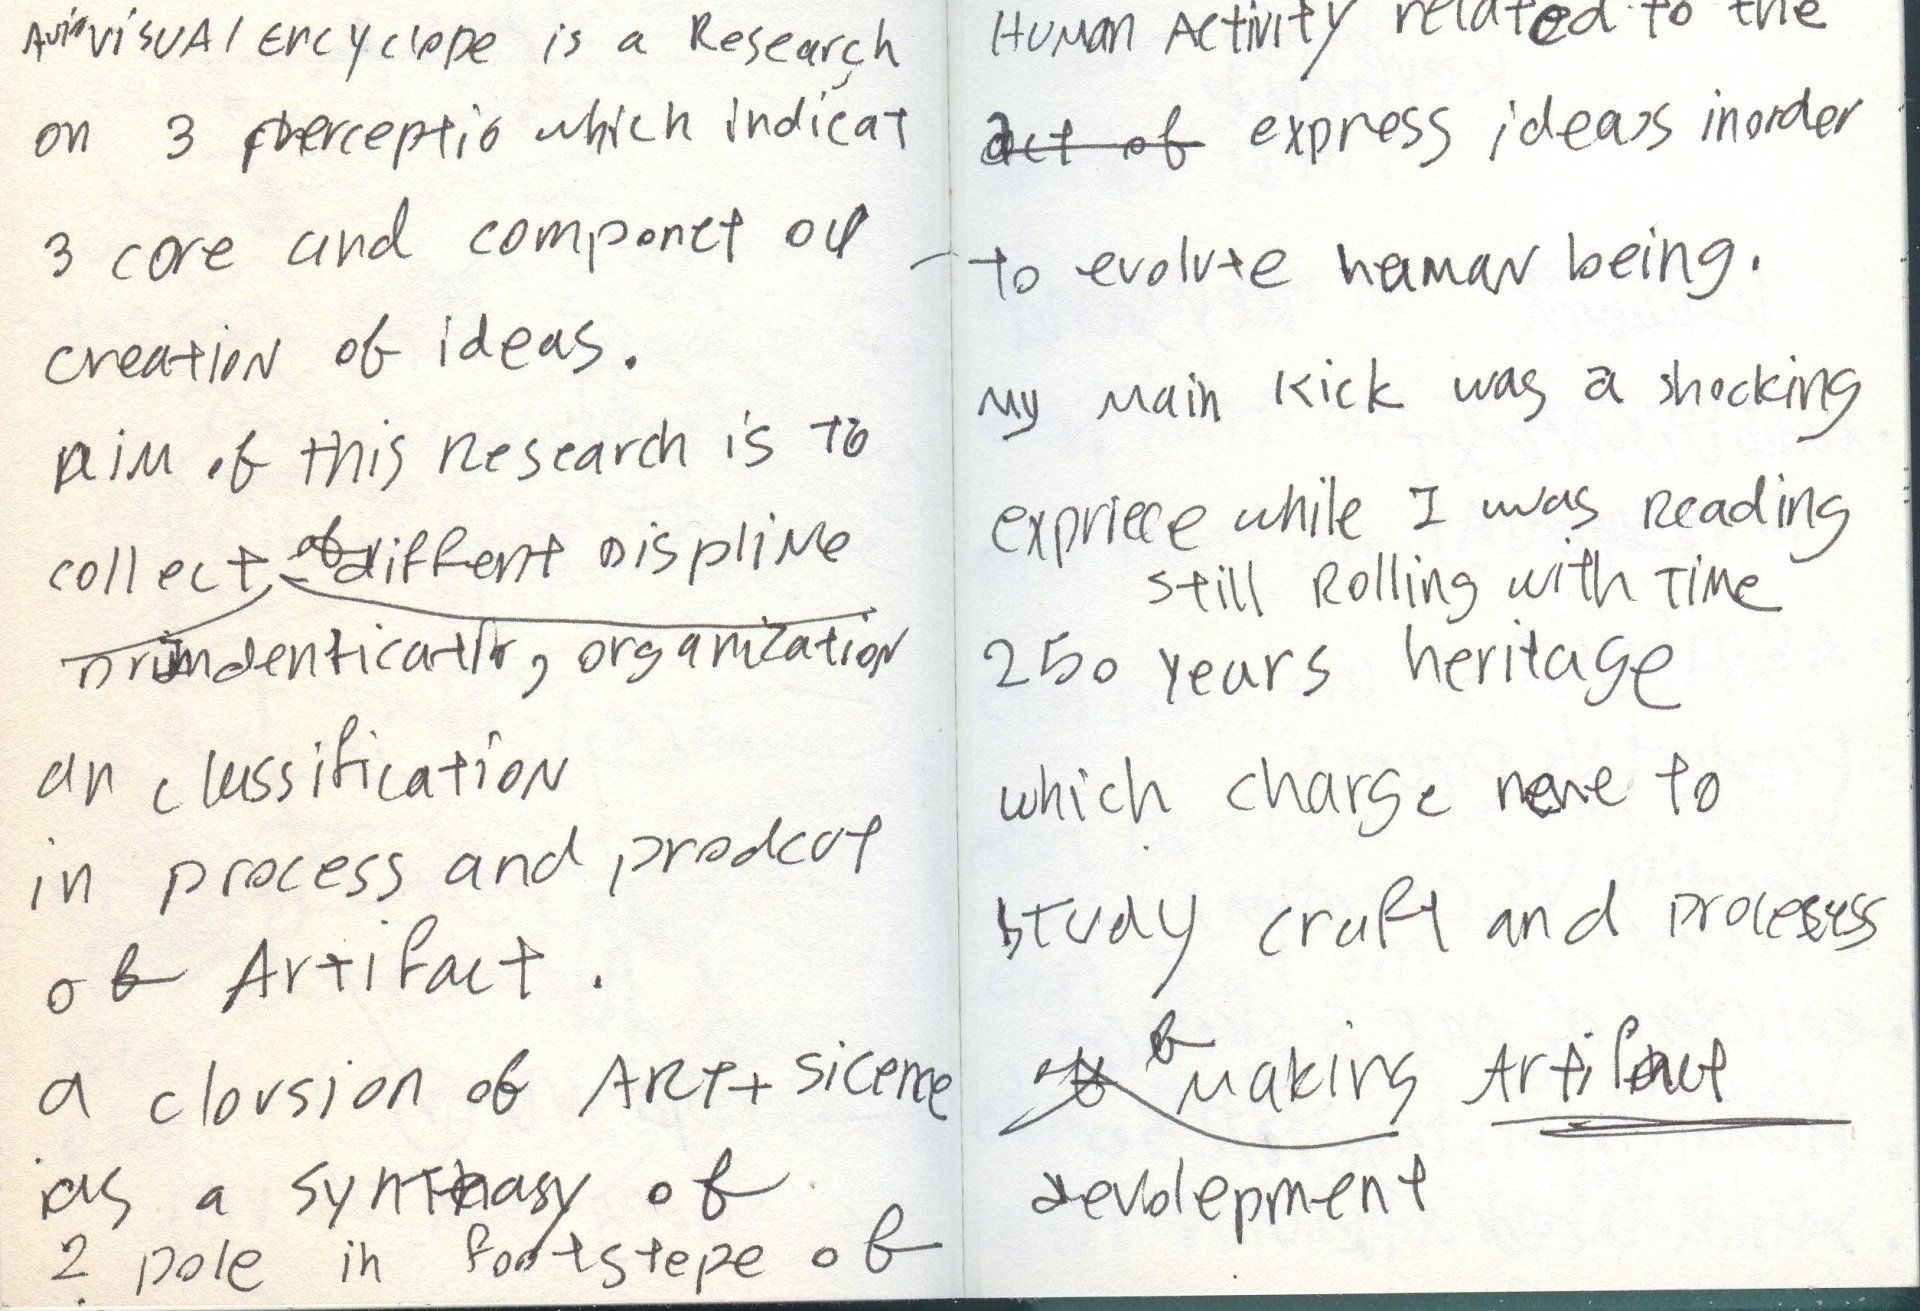 visual Encyclope is a Research
on 3 pherceptio which indicat
3 core and componet
creation of ideas.
Aim of this Research is to
collect of different Displine
organization
an classification
in process and prodcut
of Artifact.
a clousion of ART + sicence
as a of
2 pole in footstepe of
Human Activity related to the
act of express ideas inorder
to evolute human being.
My Main Kick was a shocking
expriece while I was Reading
still Rolling with Time
250 years heritage
which charge to
study craft and processess
of Making Artifact
devolepment